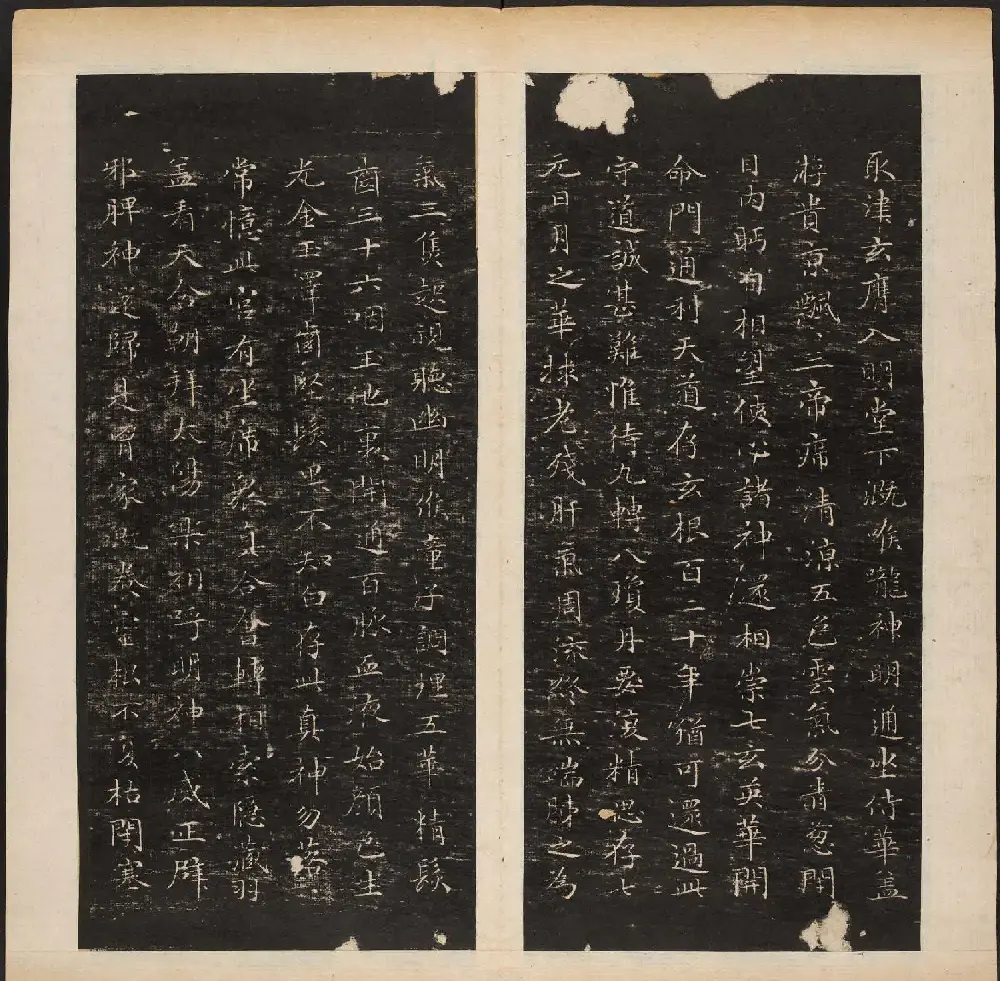 取津玄膺入明堂下溉喉嚨神明通坐侍華蓋
游貴京飄〻三帝席清涼五色雲氣紛青葱閉
目內眄自相望使心諸神還相崇七玄英華開
命門通利天道存玄根百二十年猶可還過此
守道誠甚難惟待九轉八瓊丹要復精思存七
元日月之華救老殘肝氣周流終無端肺之為
氣三焦起視聽幽明候童子調理五華精髮
齒三十六咽玉池裏開通百脈血液始顏色生
光金玉澤齒堅髮黑不知白存此真神勿落落
當憶此宮有坐席眾真合會轉相索隱藏羽
蓋看天舍朝拜太陽樂相呼明神八威正辟
邪脾神還歸是胃家耽養靈根不復枯閉塞